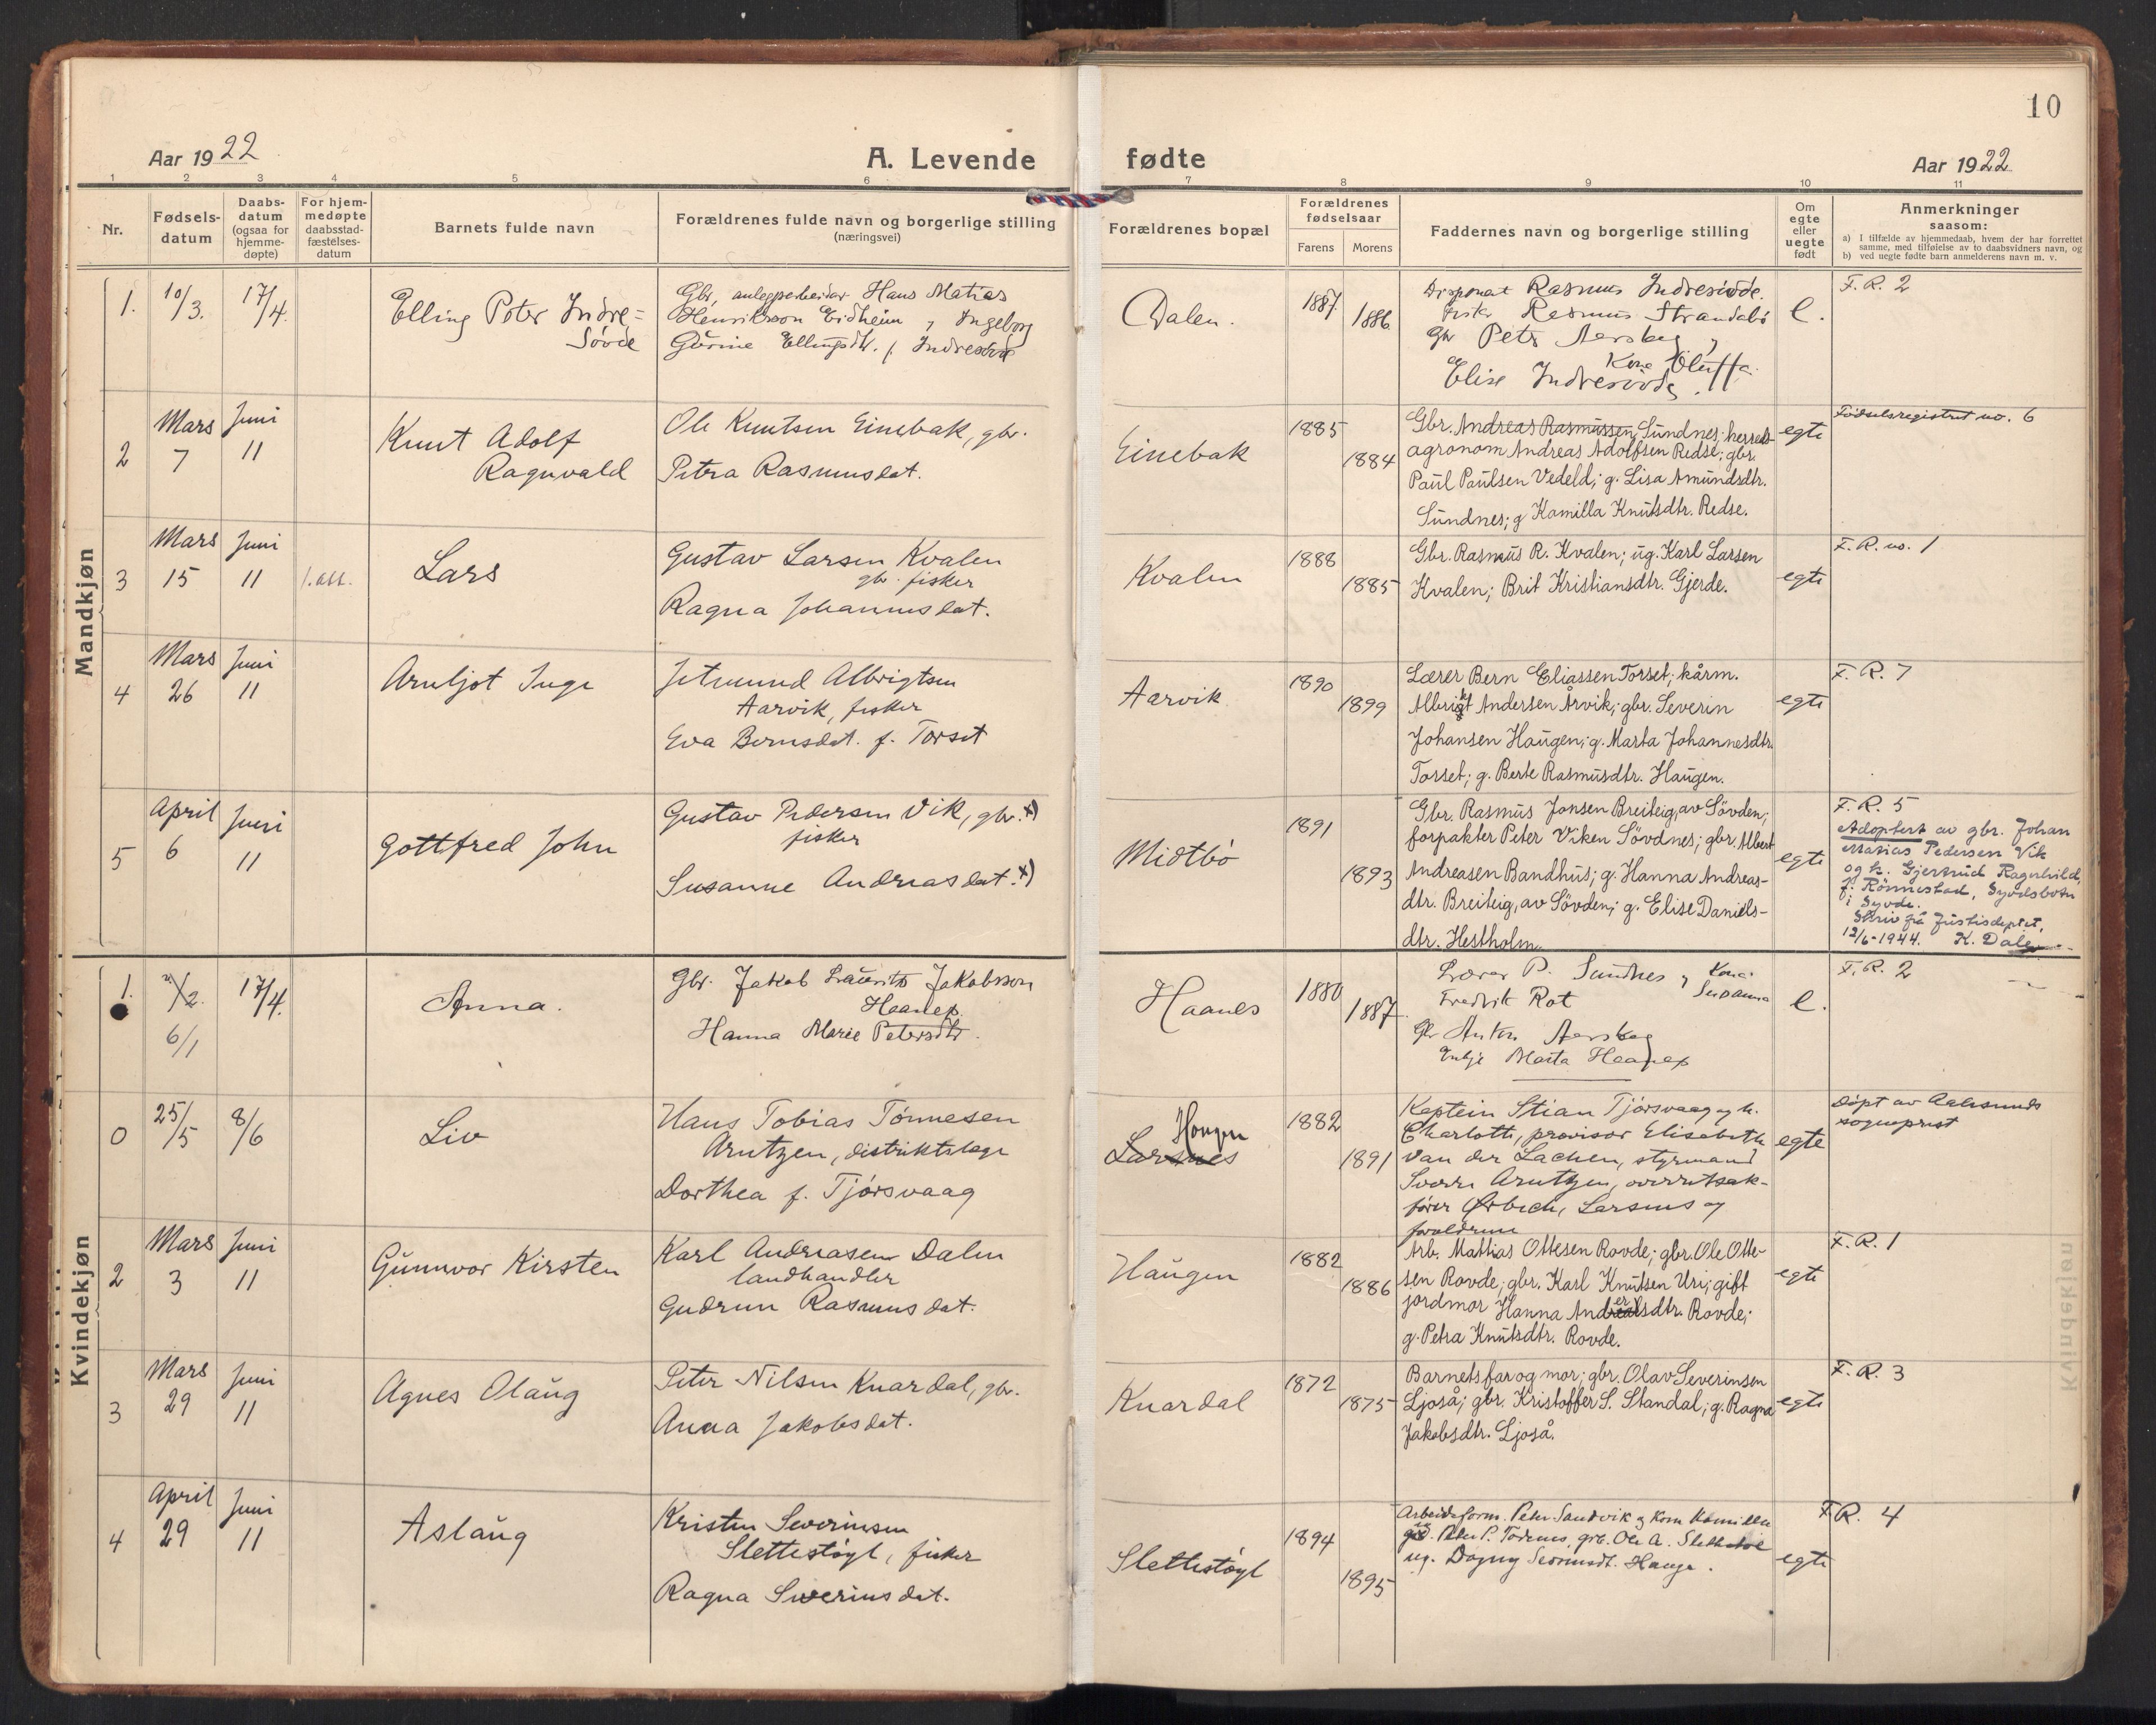 10
Aar 1922
A. Levende
fødte
Aar 1922
1 2 3 4 5 6 7 8 9 10 11
Nr.
Fødsels-
datum
Daabs-
datum
(ogsaa for
hjemme-
døpte)
For hjem-
medøpte
daabsstad-
fæstelses-
datum
Barnets fulde navn
Forældrenes fulde navn og borgerlige stilling
(næringsvei)
Forældrenes bopæl
Forældrenes
fødselsaar
Farens Morens
Faddernes navn og borgerlige stilling
Om
egte
eller
uegte
født
Anmerkninger
saasom:
a) I tilfælde av hjemmedaab, hvem der har forrettet
samme, med tilføielse av to daabsvidners navn, og
b) ved uegte fødte barn anmelderens navn m. v.
Mandkjøn
1. 10/3. 17/4.
Elling Peter Indre=
Søvde
Gbr, anlegsarbeider Hans Matias
Henriksson Eidheim, Ingeborg
Gurine Ellingsdtr. f. Indresøvde
Dalen.
1887. 1886
Disponent Rasmus Indresøvde.
fisker Rasmus Strandabø
Gbr Peter Aarskog,
Kone Oluffa.
Elise Indresøvde.
e.
F. R. 2
2 Mars 7 Juni 11
Knut Adolf
Ragnvald
Ole Knutsen Einebak, gbr.
Petra Rasmusdat.
Einebak
1885 1884
Gbr. Andreas Rasmussen Sundnes; herreds-
agronom Andreas Adolfsen Redse; gbr.
Paul Paulsen Vedeld; g. Lisa Amundsdtr.
Sundnes; g Kamilla Knutsdtr. Redse.
egte
Fødselsregistret no. 6
3 Mars 15 Juni 11
Lars
Gustav Larsen Kvalen
gbr. fisker
Ragna Johannesdat.
Kvalen
1888 1885
Gbr. Rasmus R. Kvalen; ug. Karl Larsen
Kvalen; Brit Kristiansdtr. Gjerde.
egte
F. R. no. 1
4 Mars 26 Juni 11
Arnljot Inge
Jetmund Albrigtsen
Aarvik, fisker
Eva Bernsdat. f. Torset
Aarvik
1890 1899
Lærer Bern Eliassen Torset; kårm.
Albrigt Andersen Årvik; gbr. Severin
Johansen Haugen; g. Marta Johannesdtr.
Torset; g. Berte Rasmusdtr. Haugen.
egte
F. R. 7
5 April 6 Juni 11
Gottfred John
Gustav Pedersen Vik, gbr. x)
fisker
Susanne Andreasdat. x)
Midtbø
1891 1893
Gbr. Rasmus Jonsen Breiteig, av Søvden;
forpakter Peter Viken Søvdnes; gbr. Albert
Andreasen Bandhus; g. Hanna Andreas-
dtr. Breiteig, av Søvden; g. Elise Daniels-
dtr. Hestholm.
egte
F. R. 5
Adoptert av gbr. Johan
Matias Pedersen Vik
og h. Gjertrud Ragnhild,
f. Rønnestad, Syvdsbotn
i Syvde.
Skriv frå Justisdeptet,
12/6-1944. K. Dale
Kvindekjøn
1. 6/1 17/4.
Anna.
Gbr. Jakob Laurits Jakobsson
Haanes.
Hanna Marie Petersdtr.
Haanes
1880 1887.
Lærer P. Sundnes, Kone
Susanna
Fredrik Rot
Gbr Anton Aarskog
Enkje Marta Haanes
e.
F. R. 2
0 25/5 8/6
Liv
Hans Tobias Tønnesen
Arntzen, distriktslæge
Dorthea f. Tjørsvaag
Haugen
Larsnes
1882 1891
Kaptein Stian Tjørsvaag og h.
Charlotte, provisor Elisabeth
van der Lachen, styrmand
Sverre Arntzen, overretssak-
fører Ørbech, Larsnes og
forældrene
egte
Døpt av Aalesunds
sogneprest
2 Mars 3 Juni 11
Gunnvor Kirsten
Karl Andreasen Dalen
landhandler
Gudrun Rasmusdat.
Haugen
1882 1886
Arb. Mattias Ottesen Rovde; gbr. Ole Otte-
sen Rovde; gbr. Karl Knutsen Uri; gift
jordmor Hanna Andersdtr. Rovde;
g. Petra Knutsdtr. Rovde.
egte
F. R. 1
3 Mars 29 Juni 11
Agnes Olaug
Peter Nilsen Knardal, gbr.
Anna Jakobsdat.
Knardal
1872 1875
Barnets far og mor; gbr. Olav Severinsen
Ljoså; gbr. Kristoffer S. Standal; g. Ragna
Jakobsdtr. Ljoså.
egte
F. R. 3
4 April 29 Juni 11
Aslaug
Kristen Severinsen
Slettestøyl, fisker
Ragna Severinsdat.
Slettestøyl
1894 1895
Arbeidsform. Peter Sandvik og kone Kamilla
Peter P. Todnes, grb. Ole A. Slettestøl
ug. Dagny Severinsdt. Hauge.
egte
F. R. 4